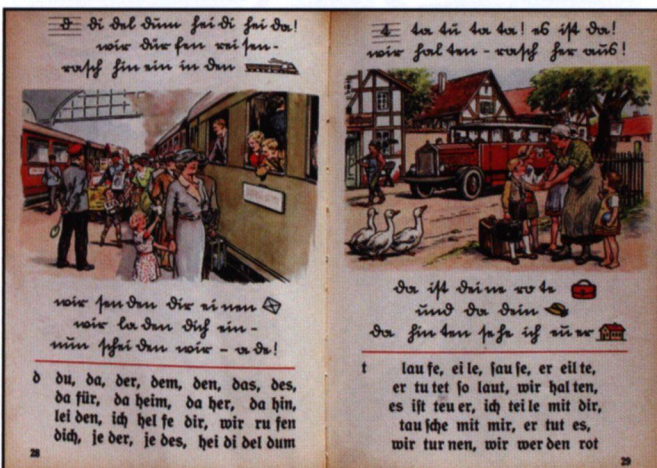 d di del dum hei di hei da!
wir dür fen rei sen-
rasch hin ein in den
wir sen den dir ei nen
wir la den dich ein-
nun schei den wir - a de!
d du, da, der, dem, den, das, des,
da für, da heim, da her, da hin,
lei den, ich hel fe dir, wir ru fen
dich, je der, je des, hei di del dum
28
t ta tü ta ta! es ist da!
wir hal ten - rasch her aus!
da ist dei ne ro te
und da dein
da hin ten se he ich eu er
t lau fe, ei le, sau se, er eil te,
er tu tet so laut, wir hal ten,
es ist teu er, ich tei le mit dir,
tau sche mit mir, er tut es,
wir tur nen, wir wer den rot
29